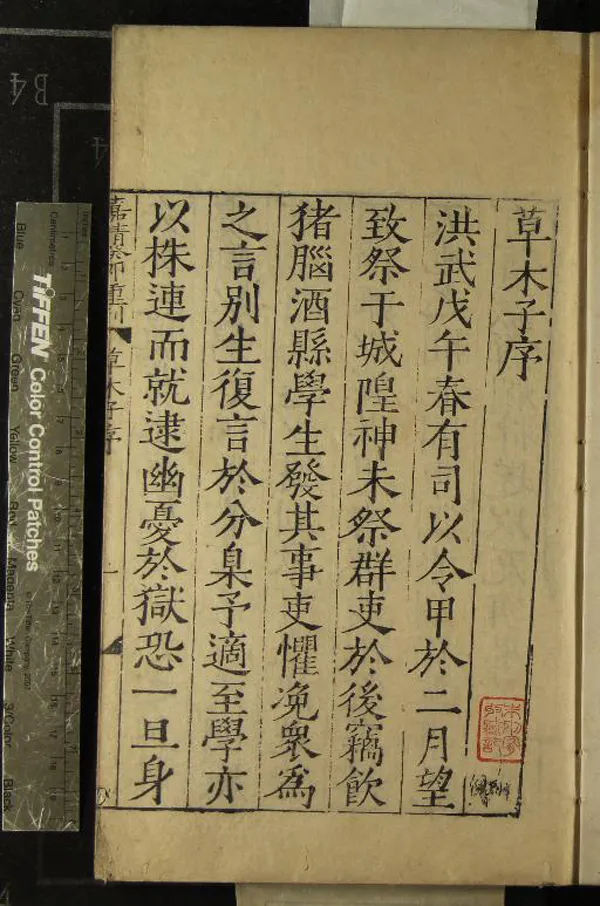 草木子序
洪武戊午春有司以令甲於二月望
致祭于城隍神未祭群吏於後竊飲
猪腦酒縣學生發其事吏懼浼衆為
之言別生復言於分臬予適至學亦
以株連而就逮幽憂於獄恐一旦身
嘉靖癸卯重刊
草木子序
一
B4
Centimetres
Inches
TIFFEN Color Control Patches
Blue
Cyan
Green
Yellow
Red
Magenta
White
3/Color
Black